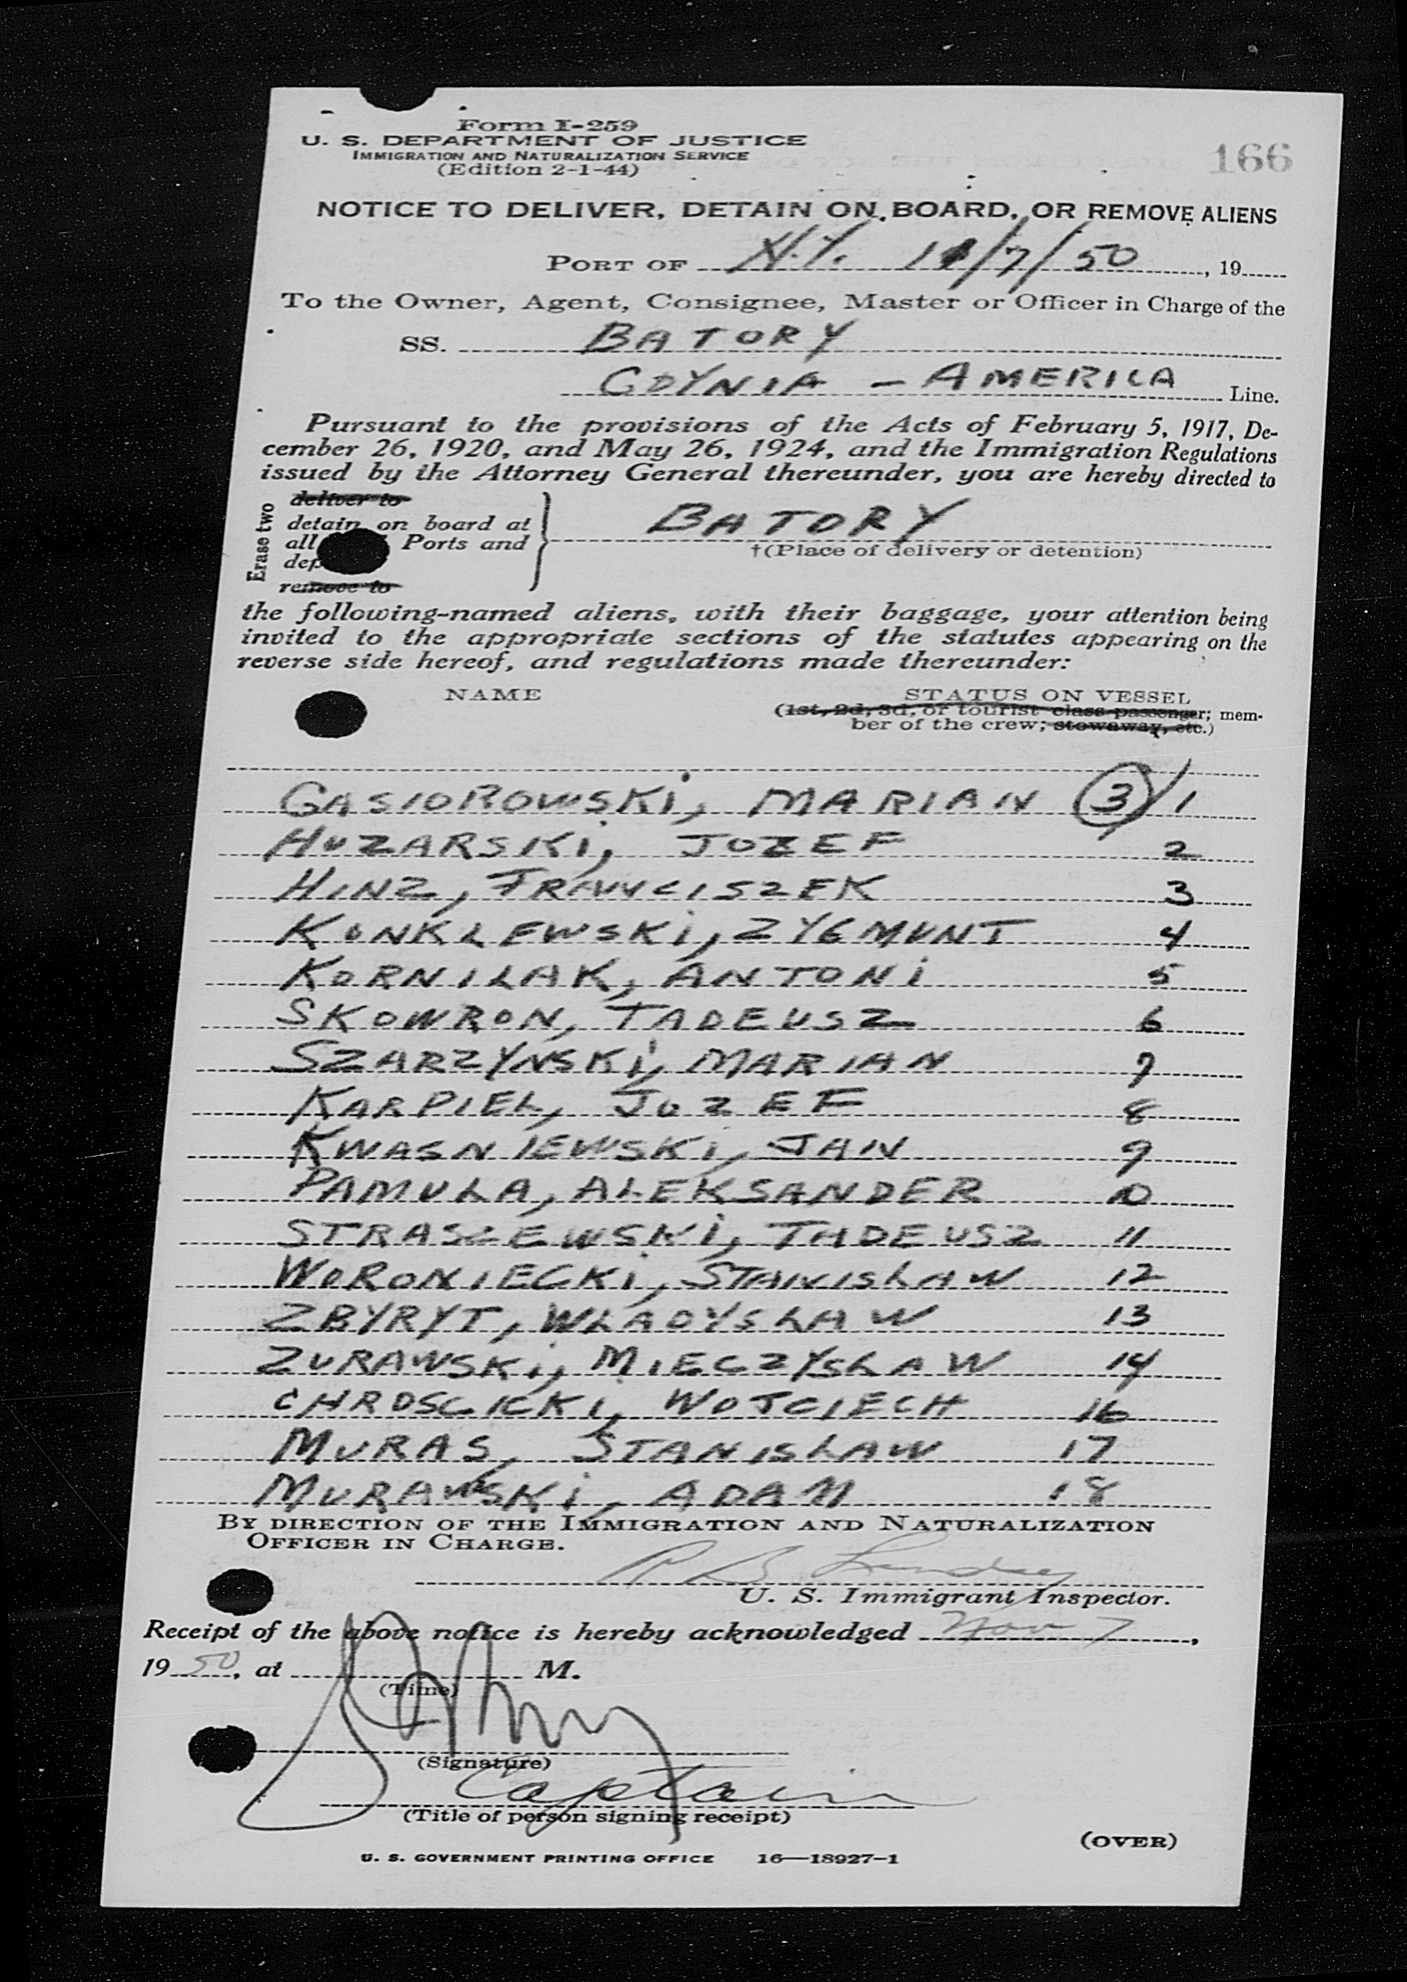 Form I-259
U. S. DEPARTMENT OF JUSTICE
IMMIGRATION AND NATURALIZATION SERVICE
(Edition 2-1-44)
166
NOTICE TO DELIVER, DETAIN ON BOARD, OR REMOVE ALIENS
PORT OF N.Y. 11/7/50, 19
To the Owner, Agent, Consignee, Master or Officer in Charge of the
SS. BATORY
GDYNIA - AMERICA Line.
Pursuant to the provisions of the Acts of February 5, 1917, De-
cember 26, 1920, and May 26, 1924, and the Immigration Regulations
issued by the Attorney General thereunder, you are hereby directed to
Erase two
deliver to
detain on board at
all Ports and
remove to
BATORY
†(Place of delivery or detention)
the following-named aliens, with their baggage, your attention being
invited to the appropriate sections of the statutes appearing on the
reverse side hereof, and regulations made thereunder:
NAME
STATUS ON VESSEL
(1st, 2d, 3d, or tourist class passenger; mem-
ber of the crew; stowaway, etc.)
GASIOROWSKI, MARIAN 3 1
HUZARSKI, JOZEF 2
HINZ, FRANCISZEK 3
KONKLEWSKI, ZYGMUNT 4
KORNILAK, ANTONI 5
SKOWRON, TADEUSZ 6
SZARZYNSKI, MARIAN 7
KARPIEL, JOZEF 8
KWASNIEWSKI, JAN 9
PAMULA, ALEKSANDER 10
STRASZEWSKI, TADEUSZ 11
WORONIECKI, STANISLAW 12
ZBYRYT, WLADYSLAW 13
ZURAWSKI, MIECZYSLAW 14
CHROSCICKI, WOJCIECH 16
MURAS, STANISLAW 17
MURAWSKI, ADAM 18
BY DIRECTION OF THE IMMIGRATION AND NATURALIZATION
OFFICER IN CHARGE.
U. S. Immigrant Inspector.
Receipt of the above notice is hereby acknowledged Nov 7,
19 50, at M.
(Time)
(Signature)
Captain
(Title of person signing receipt)
(OVER)
U. S. GOVERNMENT PRINTING OFFICE 16—18927-1